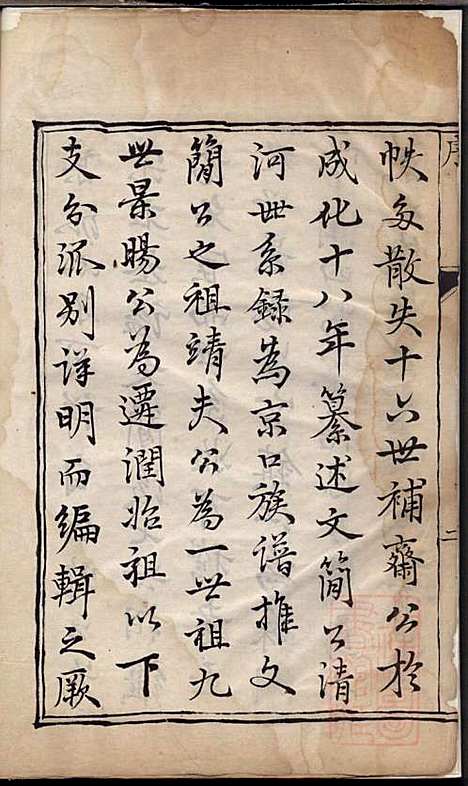 序
帙多散失十六世補齋公於
成化十八年纂述文簡公清
河世系錄為京口族譜推文
簡公之祖靖夫公為一世祖九
世景暘公為遷潤始祖以下
支分派別詳明而編輯之厥
二